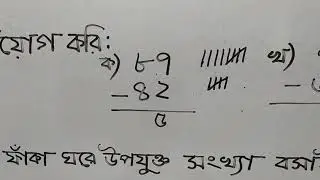 য়োগ করি:
ক) ৮৭ খ)
- ৪২ -
৫
ফাঁকা ঘরে উপযুক্ত সংখ্যা বসা